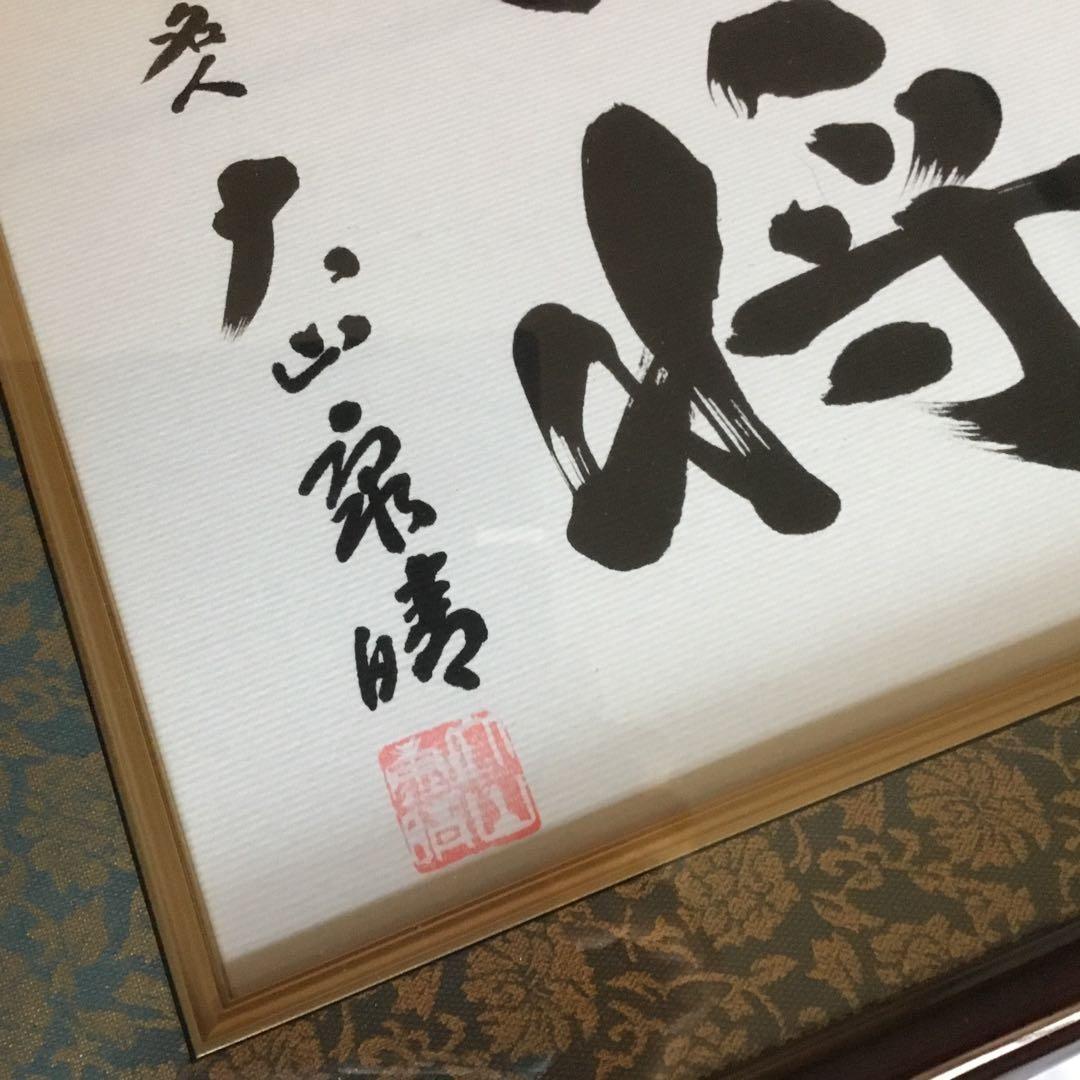 将
名人 大山康晴